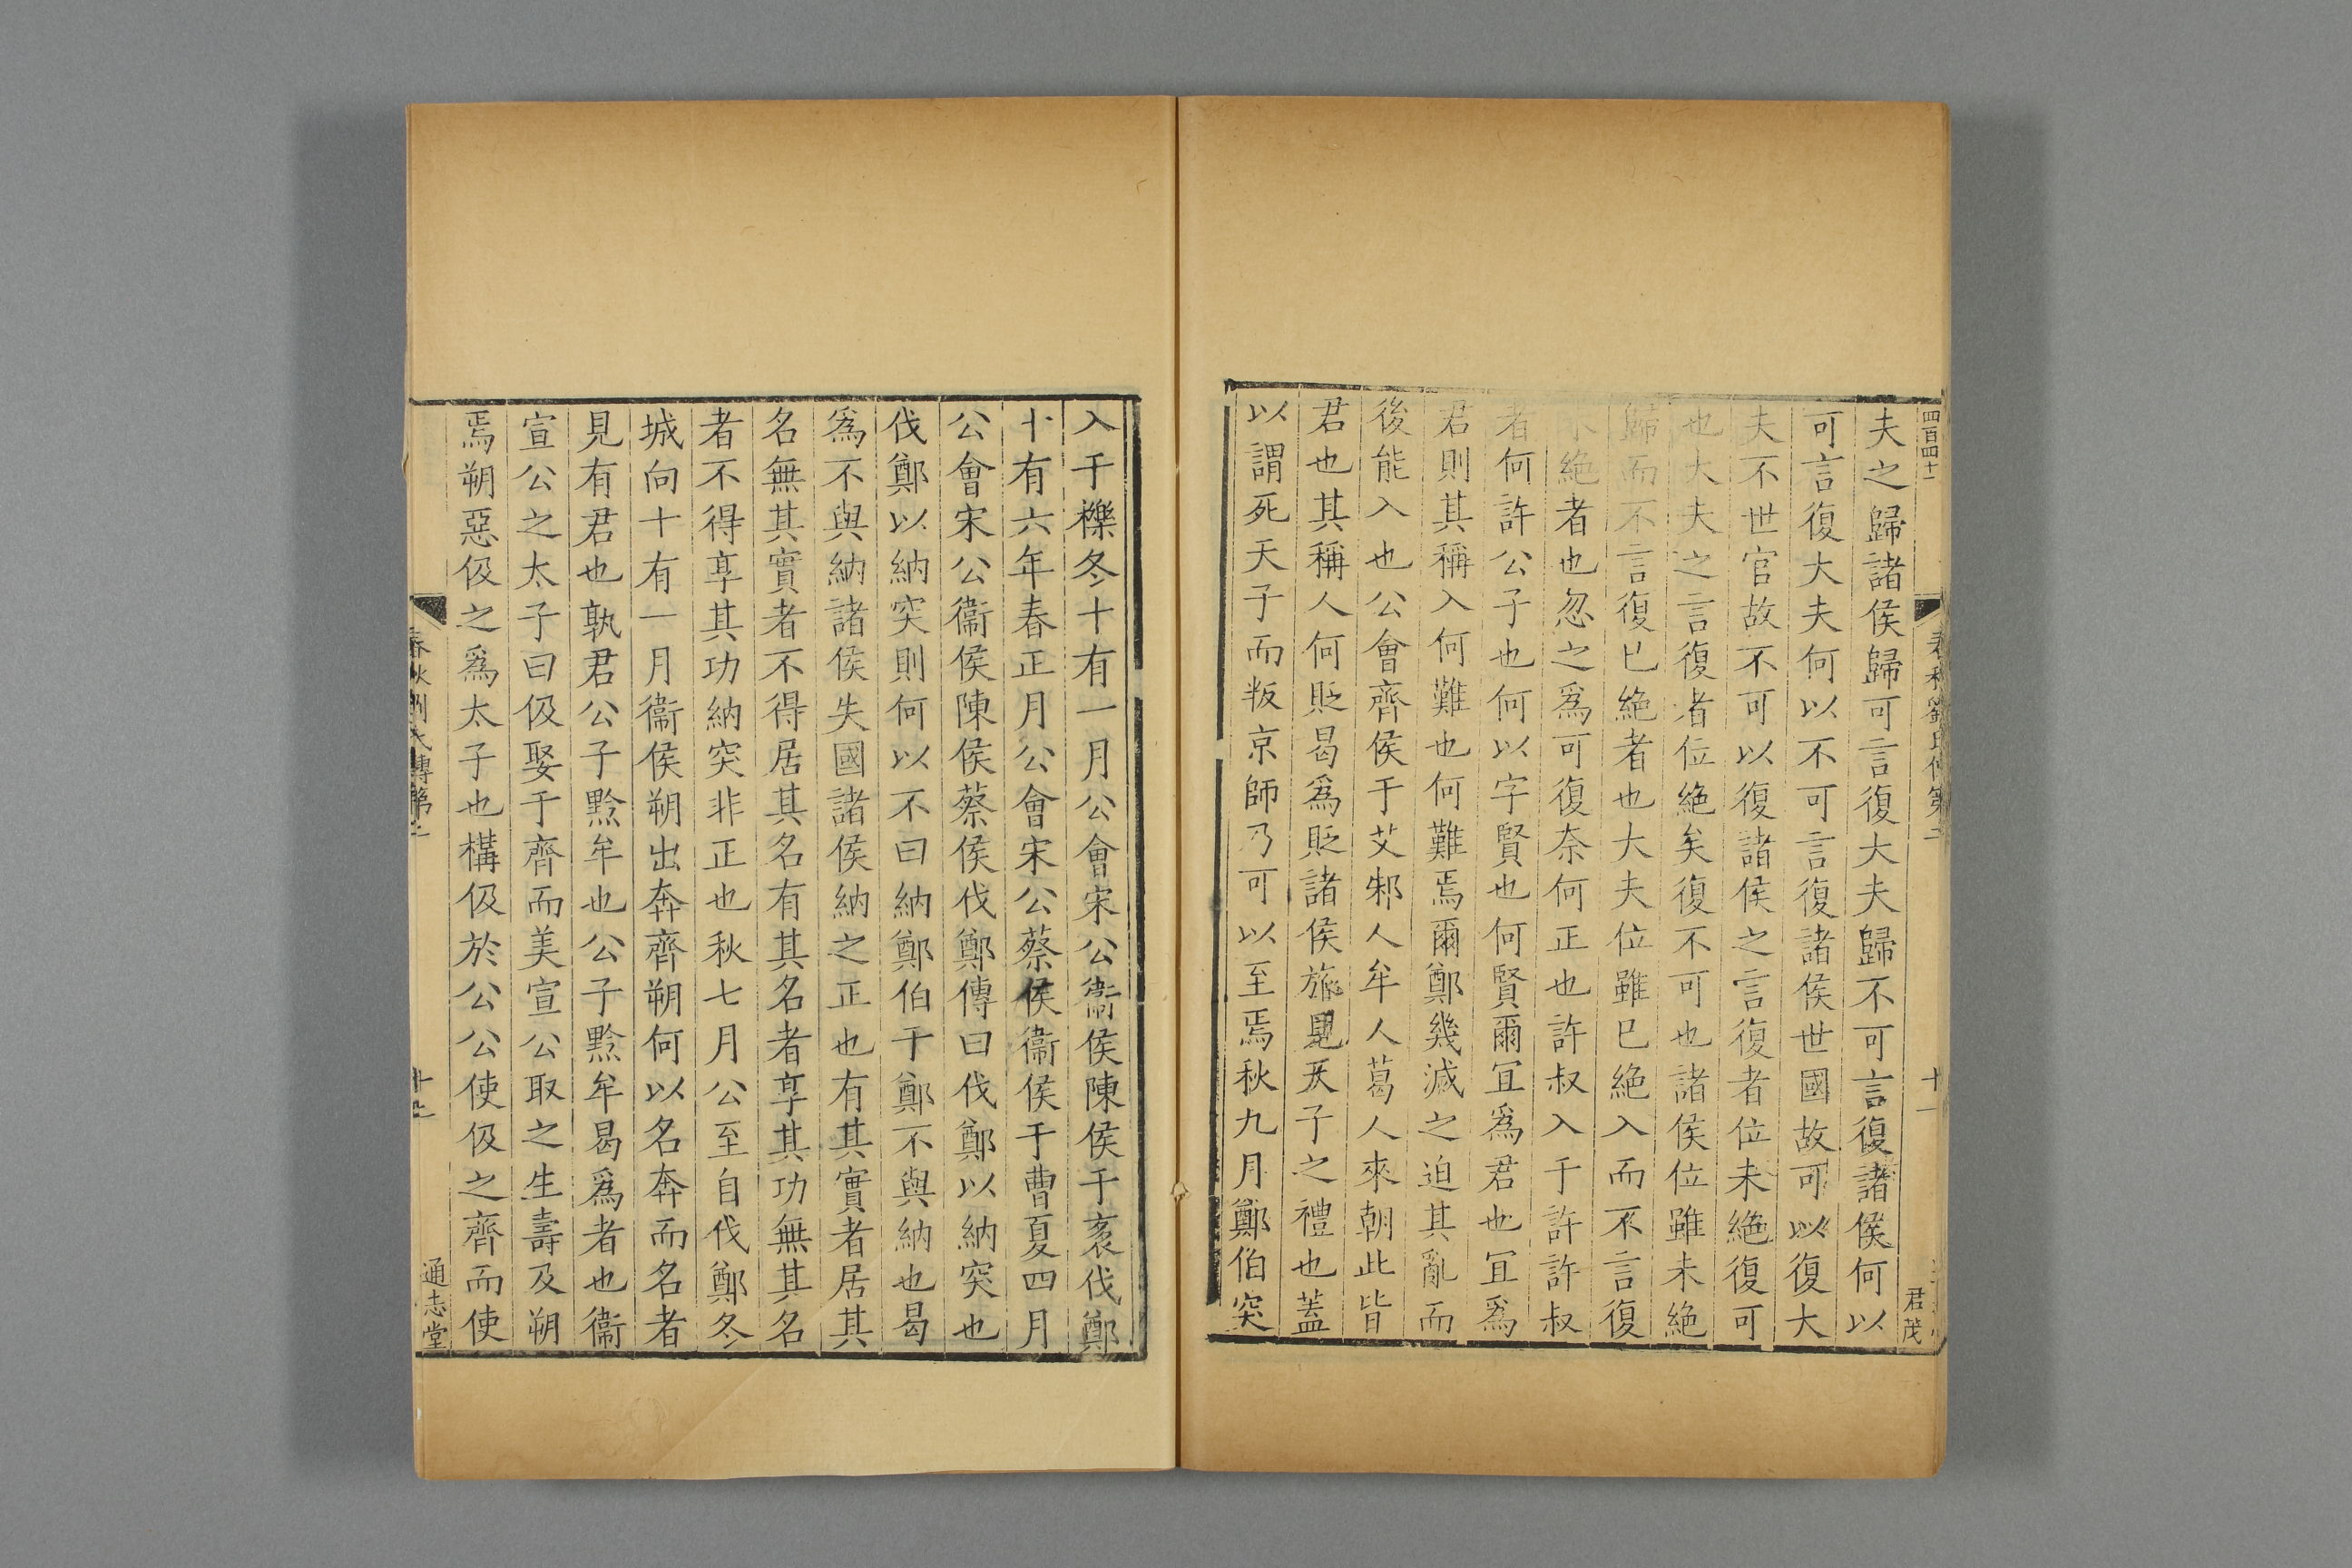 四百四十二
春秋劉氏傳第二
十一
君茂
夫之歸諸侯歸可言復大夫歸不可言復諸侯何以
可言復大夫何以不可言復諸侯世國故可以復大
夫不世官故不可以復諸侯之言復者位未絶復可
也大夫之言復者位絶矣復不可也諸侯位雖未絶
歸而不言復已絶者也大夫位雖已絶入而不言復
不絶者也忽之爲可復奈何正也許叔入于許許叔
者何許公子也何以字賢也何賢爾冝爲君也冝爲
君則其稱入何難也何難焉爾鄭幾滅之迫其亂而
後能入也公會齊侯于艾邾人牟人葛人來朝此皆
君也其稱人何貶曷爲貶諸侯旅見天子之禮也蓋
以謂死天子而叛京師乃可以至焉秋九月鄭伯突
入于櫟冬十有一月公會宋公衞侯陳侯于袤伐鄭
十有六年春正月公會宋公蔡侯衞侯于曹夏四月
公會宋公衞侯陳侯蔡侯伐鄭傳曰伐鄭以納突也
伐鄭以納突則何以不曰納鄭伯于鄭不與納也曷
爲不與納諸侯失國諸侯納之正也有其實者居其
名無其實者不得居其名有其名者享其功無其名
者不得享其功納突非正也秋七月公至自伐鄭冬
城向十有一月衞侯朔出奔齊朔何以名奔而名者
見有君也孰君公子黔牟也公子黔牟曷爲者也衞
宣公之太子曰伋娶于齊而美宣公取之生壽及朔
焉朔惡伋之爲太子也構伋於公公使伋之齊而使
春秋劉氏傳第二
通志堂